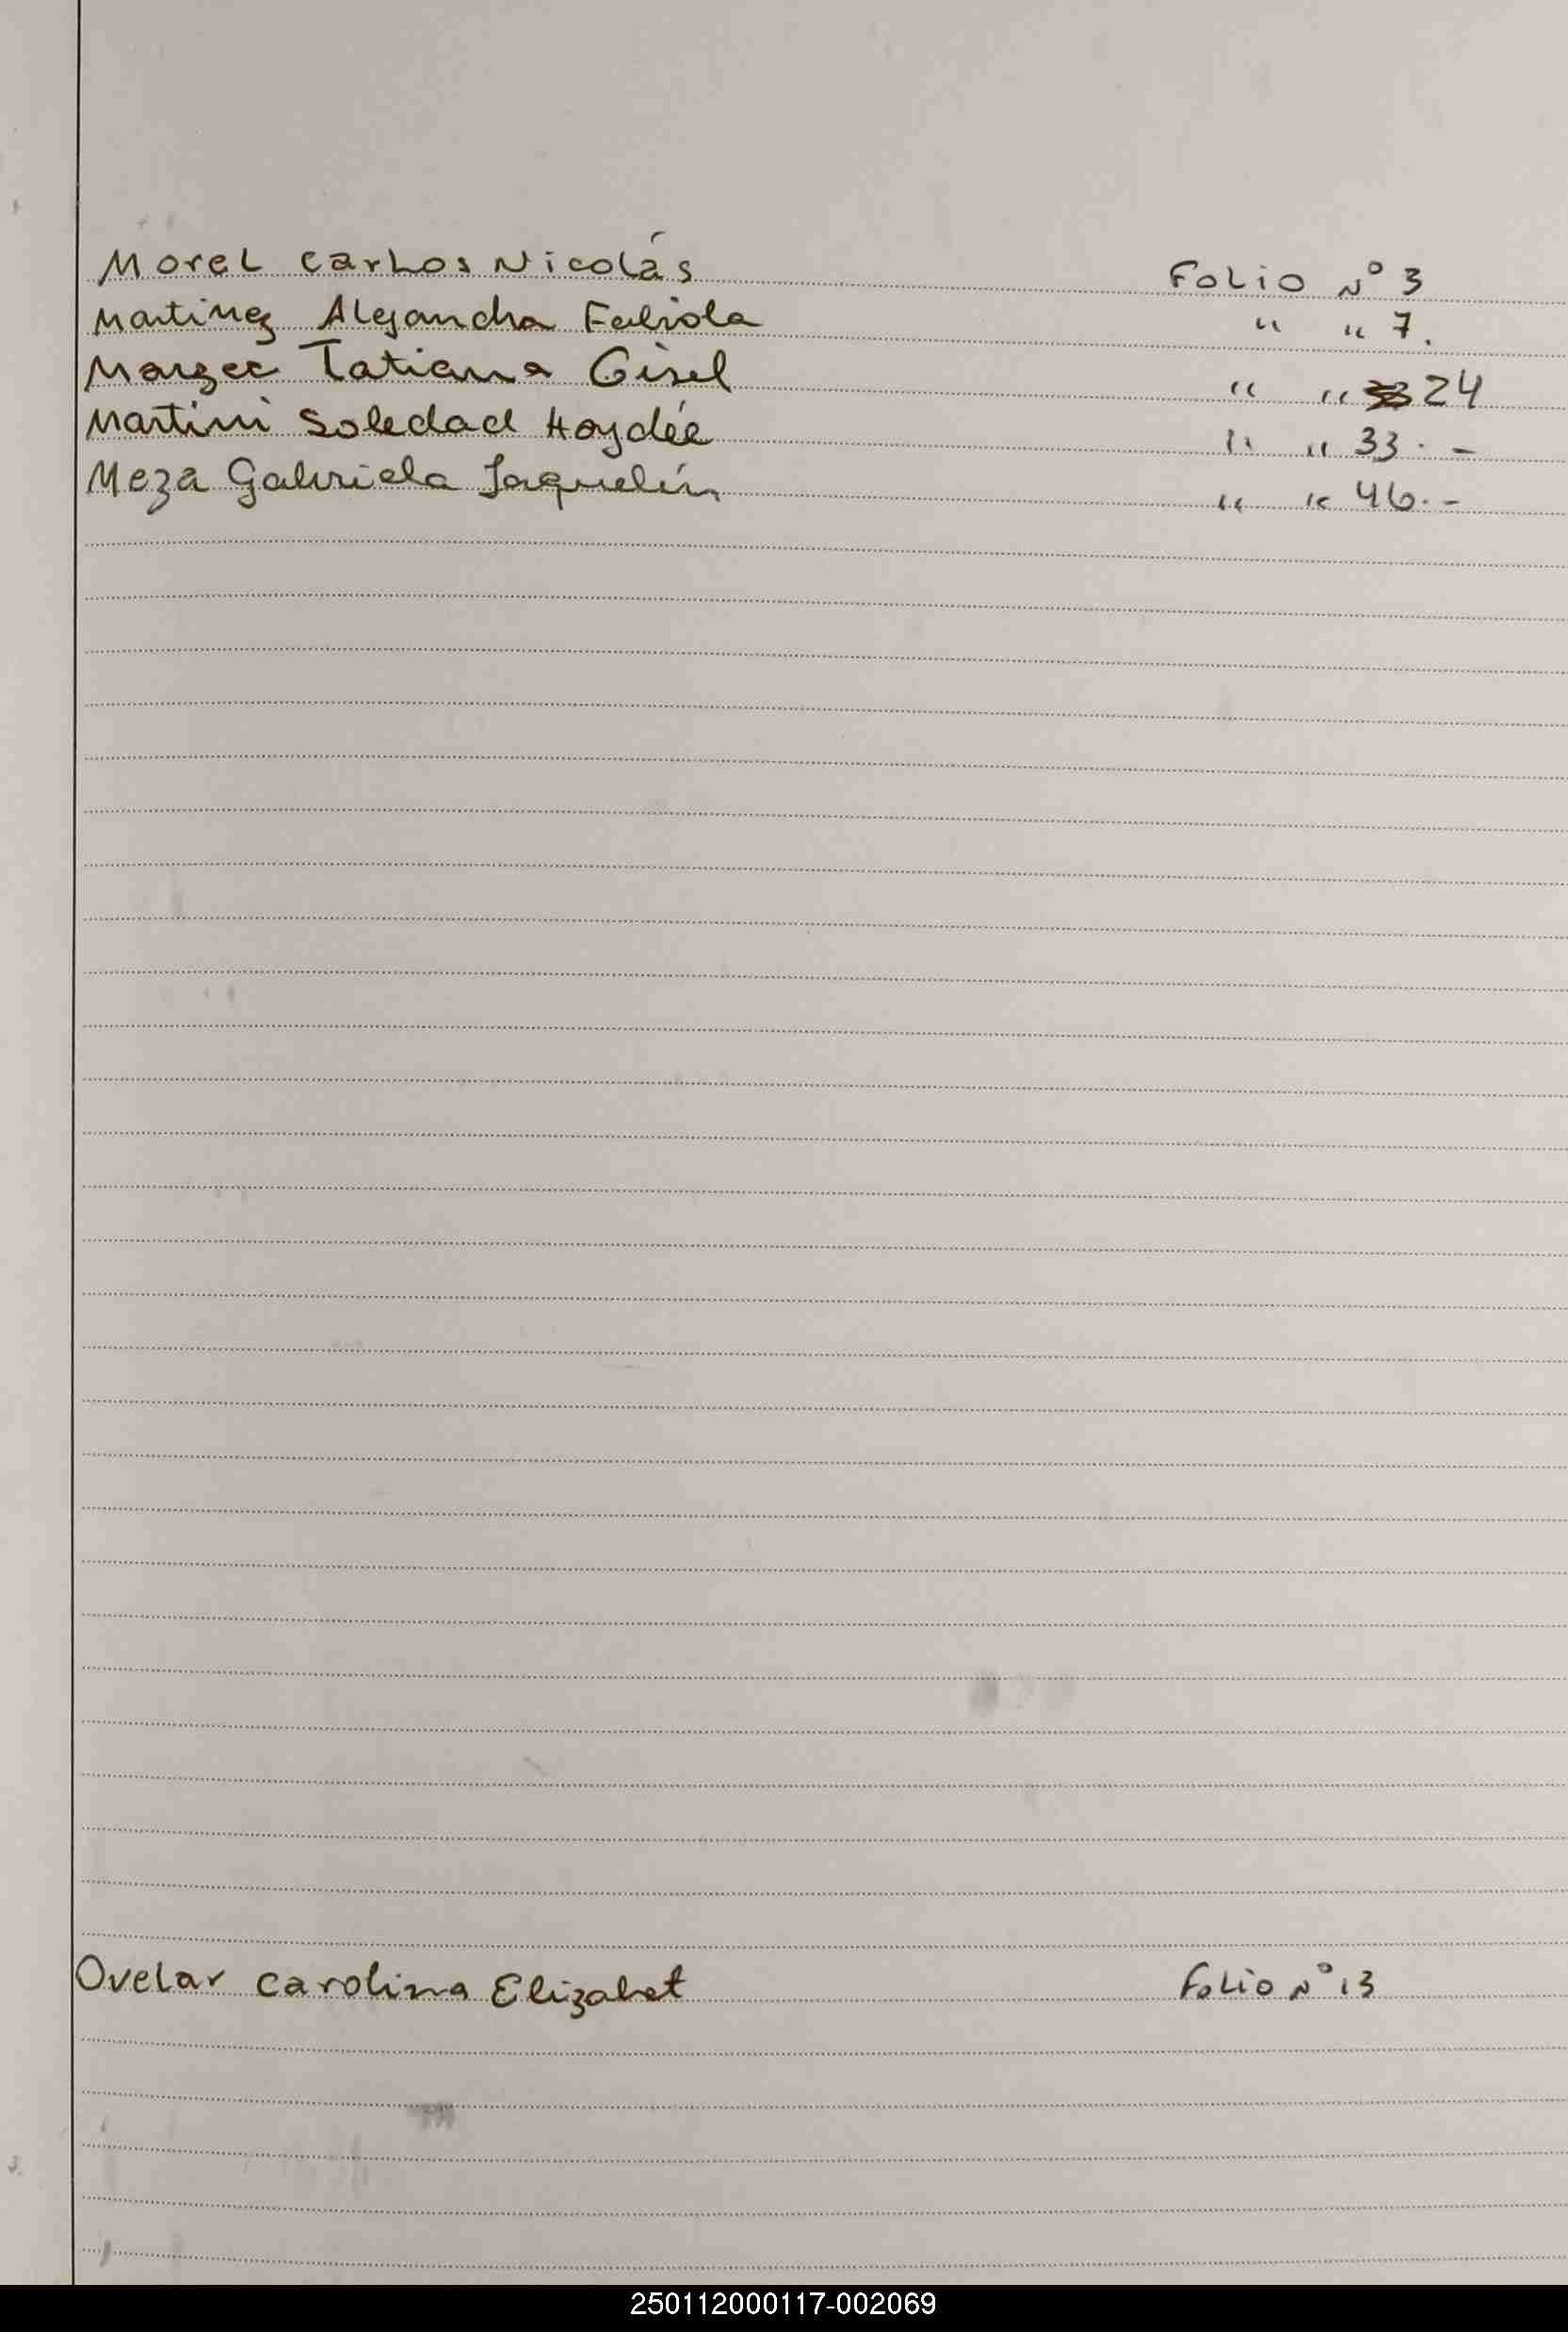 Morel Carlos Nicolás Folio Nº 3
Martinez Alejandra Fabiola " " 7.
Marzec Tatiana Gisel " " 24
Martini Soledad Haydée " " 33.-
Meza Gabriela Jaquelín " " 46.-
Ovelar Carolina Elizabet Folio Nº 13
250112000117-002069